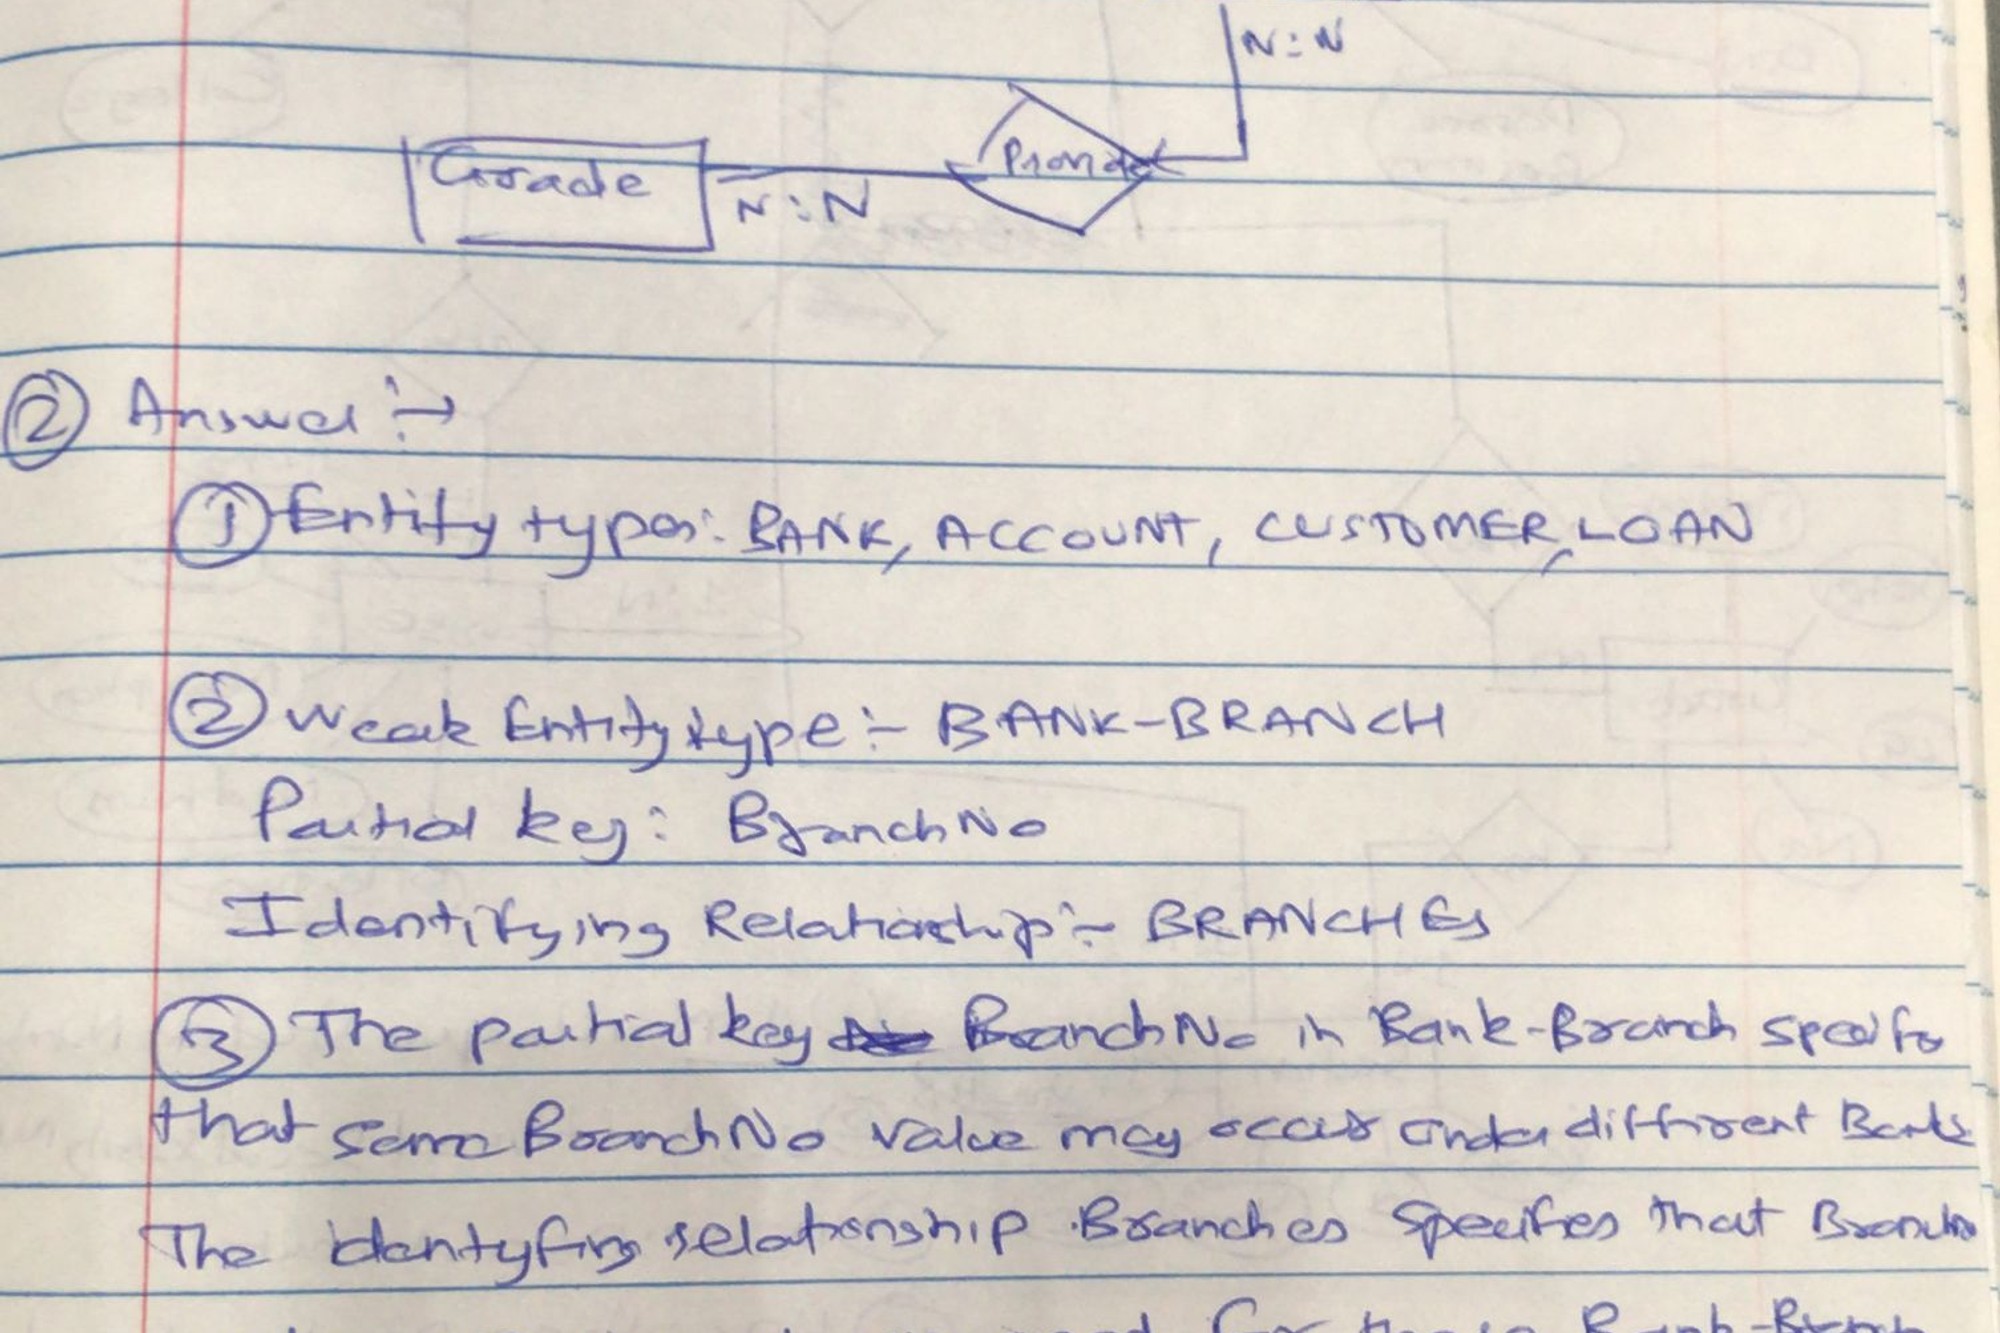 N:N
Grade
N:N
② Answer :→
① Entity types: BANK, ACCOUNT, CUSTOMER, LOAN
② Weak Entity type:- BANK-BRANCH
Partial key: BranchNo
Identifying Relationship:- BRANCHES
③ The partial key BranchNo in Bank-Branch
that same BranchNo value may occur under different Banks
The relationship Branches specifies that
Bank-Branch